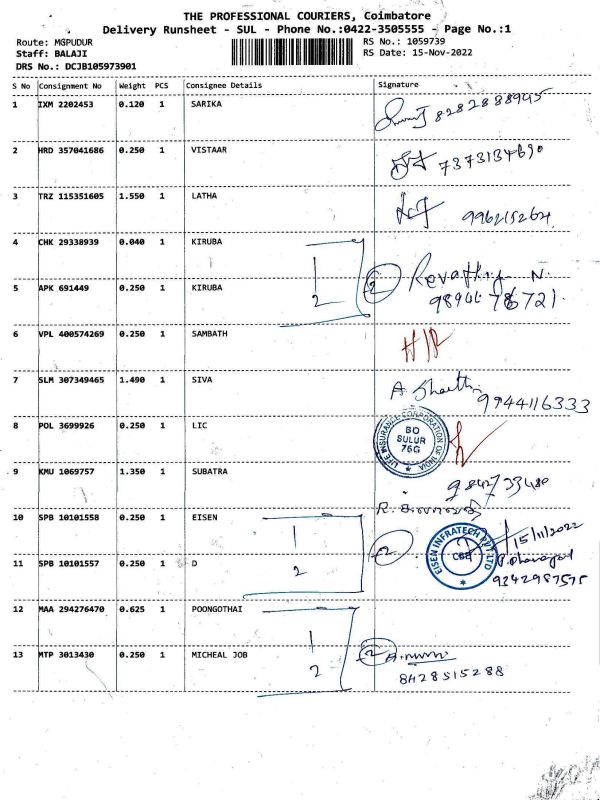 THE PROFESSIONAL COURIERS, Coimbatore
Delivery Runsheet - SUL - Phone No.:0422-3505555 - Page No.:1
Route: MGPUDUR RS No.: 1059739
Staff: BALAJI RS Date: 15-Nov-2022
DRS No.: DCJB105973901
S No Consignment No Weight PCS Consignee Details Signature
1 IXM 2202453 0.120 1 SARIKA
8282888945
2 HRD 357041686 0.250 1 VISTAAR
7373134690
3 TRZ 115351605 1.550 1 LATHA
996215264
4 CHK 29338939 0.040 1 KIRUBA 1
2 Revathy N.
5 APK 691449 0.250 1 KIRUBA 2
6 VPL 400574269 0.250 1 SAMBATH
7 SLM 307349465 1.490 1 SIVA A
9944116333
8 POL 3699926 0.250 1 LIC
LIFE INSURANCE CORPORATION OF INDIA
BO
SULUR
76G
9 KMU 1069757 1.350 1 SUBATRA
9842733480
R.
10 SPB 10101558 0.250 1 EISEN 1
15/11/2022
2
EISEN INFRATECH PVT LTD
CBE
11 SPB 10101557 0.250 1 D 2
9342987575
12 MAA 294276470 0.625 1 POONGOTHAI 1
13 MTP 3013430 0.250 1 MICHEAL JOB 2 2
8428515288